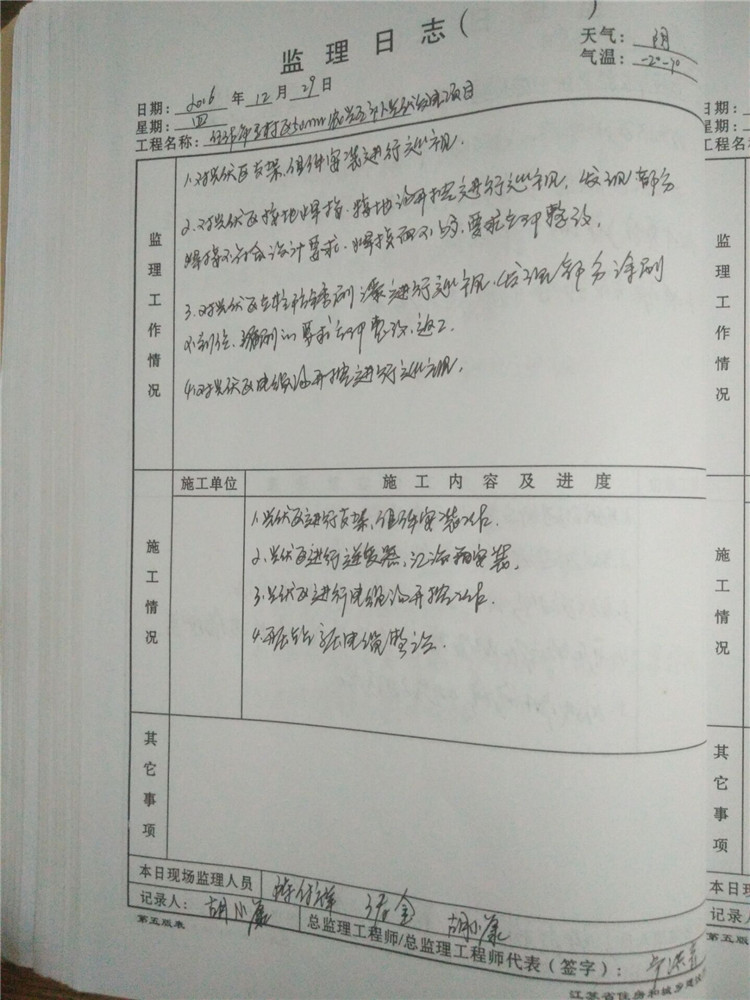 监理日志（ ）
天气：阴
气温：-2°-7°
日期：2016年12月29日
星期：四
工程名称：
监理工作情况
1.对光伏区支架、组件安装进行巡视.
2.对光伏区接地焊接、接地沟开挖进行巡视，发现部分
焊接不符合设计要求，焊接面不够，要求立即整改.
3.对光伏区立柱防锈刷漆进行巡视，发现部分涂刷
不到位、漏刷的要求立即整改、返工.
4.对光伏区电缆沟开挖进行巡视.
施工单位 施工内容及进度
施工情况
1.光伏区进行支架、组件安装工作.
2.光伏区进行逆变器、汇流箱安装.
3.光伏区进行电缆沟开挖工作.
4.升压站 电缆敷设.
其它事项
本日现场监理人员 胡小
记录人：胡小
总监理工程师/总监理工程师代表（签字）：
第五版表
江苏省住房和城乡建设
日期：
星期：
工程名
监理工作情况
施工情况
其它事项
本日现
记录人
第五版